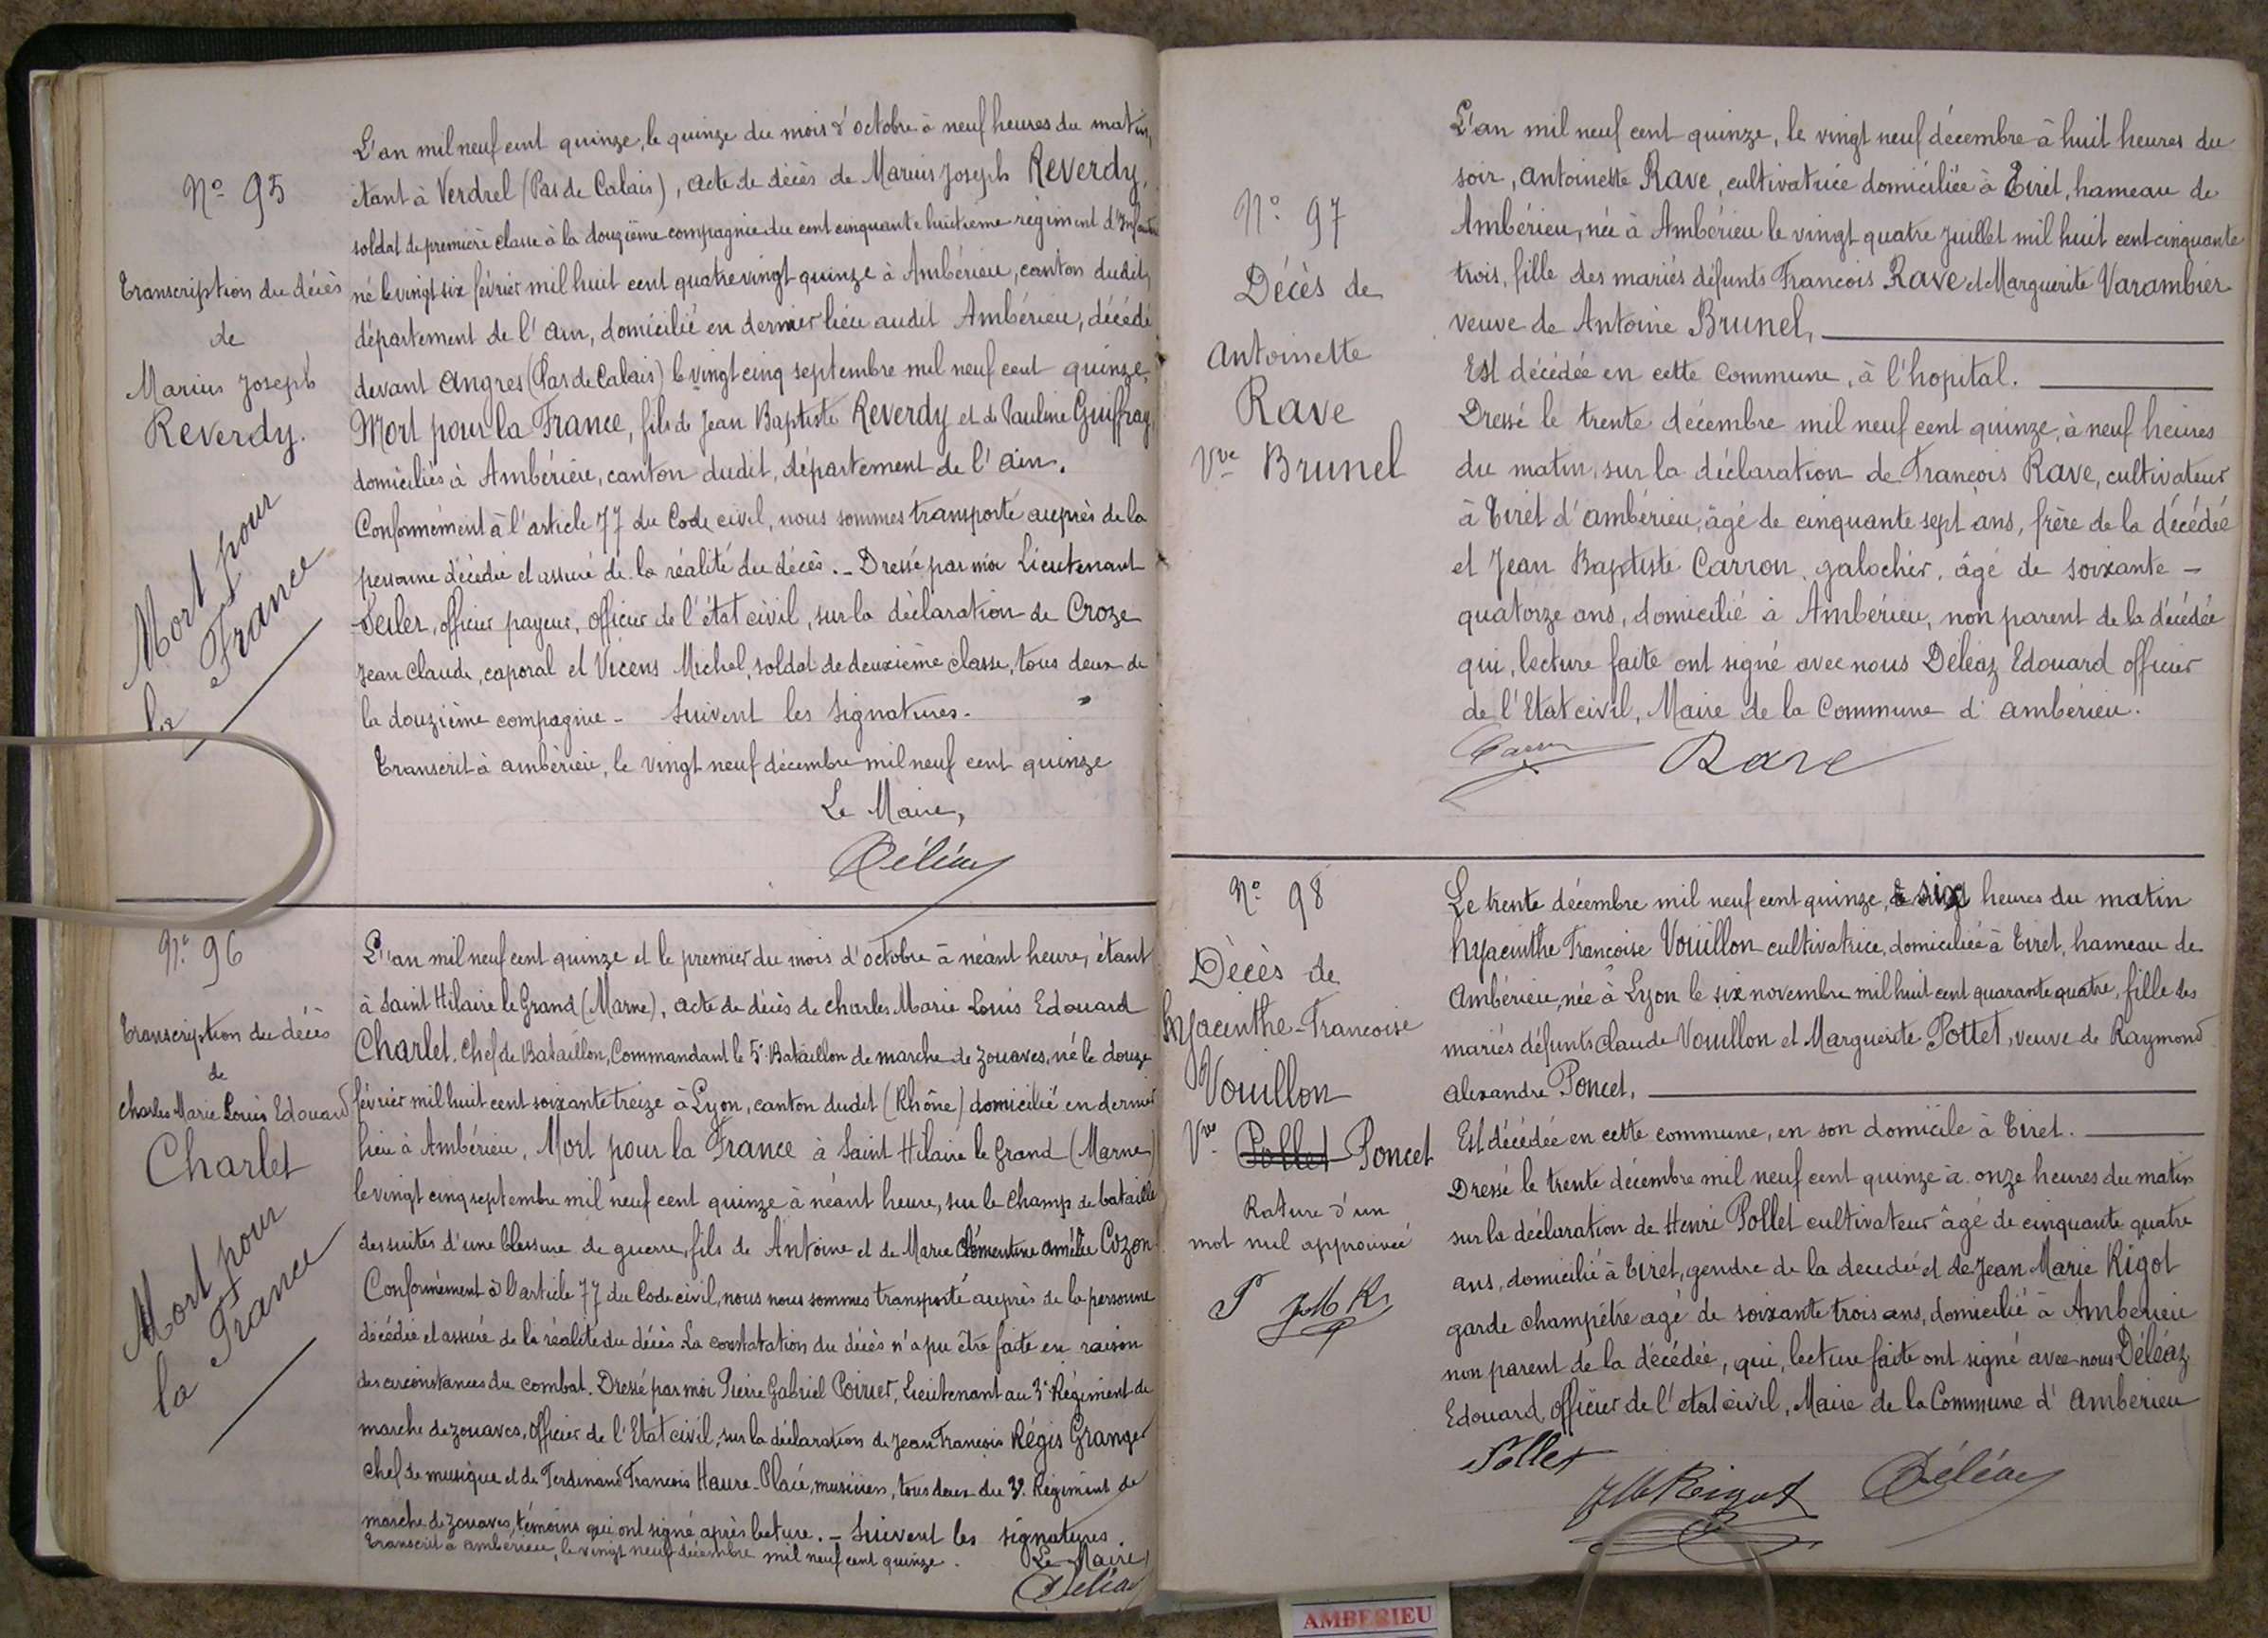 N° 95
Transcription du décès
de
Marius Joseph
Reverdy.
Mort pour
la France
L'an mil neuf cent quinze, le quinze du mois d'octobre à neuf heures du matin,
étant à Verdrel (Pas de Calais), acte de décès de Marius Joseph Reverdy,
soldat de première classe à la douzième compagnie du cent cinquante huitième régiment d'Infanterie
né le vingt six février mil huit cent quatre vingt quinze à Ambérieu, canton dudit,
département de l'Ain, domicilié en dernier lieu audit Ambérieu, décédé
devant Angres (Pas de Calais) le vingt cinq septembre mil neuf cent quinze,
Mort pour la France, fils de Jean Baptiste Reverdy et de Pauline Guiffray,
domiciliés à Ambérieu, canton dudit, département de l'Ain.
Conformément à l'article 77 du Code civil, nous sommes transporté auprès de la
personne décédée et assuré de la réalité du décès. – Dressé par moi Lieutenant
Seiler, officier payeur, officier de l'état civil, sur la déclaration de Croze
Jean Claude, caporal et Vicens Michel, soldat de deuxième classe, tous deux de
la douzième compagnie – Suivent les signatures.
Transcrit à Ambérieu, le vingt neuf décembre mil neuf cent quinze
Le Maire,
Déléaz
N° 96
Transcription du décès
de
Charles Marie Louis Edouard
Charlet
Mort pour
la France
L'an mil neuf cent quinze et le premier du mois d'octobre à néant heure, étant
à Saint Hilaire le Grand (Marne), acte de décès de Charles Marie Louis Edouard
Charlet, Chef de Bataillon, Commandant le 5e Bataillon de marche de zouaves, né le douze
février mil huit cent soixante treize à Lyon, canton dudit (Rhône) domicilié en dernier
lieu à Ambérieu, Mort pour la France à Saint Hilaire le Grand (Marne)
le vingt cinq septembre mil neuf cent quinze à néant heure, sur le champ de bataille
des suites d'une blessure de guerre, fils de Antoine et de Marie Clémentine Amélie Cozon.
Conformément à l'article 77 du Code civil, nous nous sommes transporté auprès de la personne
décédée et assuré de la réalité du décès. La constatation du décès n'a pu être faite en raison
des circonstances du combat. Dressé par moi Pierre Gabriel Poirier, Lieutenant au 3e Régiment de
marche de zouaves, Officier de l'Etat civil, sur la déclaration de Jean François Régis Granger
chef de musique et de Ferdinand François Haure-Placé, musicien, tous deux du 3e Régiment de
marche de zouaves, témoins qui ont signé après lecture. – Suivent les signatures.
Transcrit à Ambérieu, le vingt neuf décembre mil neuf cent quinze.
Le Maire,
Déléaz
N° 97
Décès de
Antoinette
Rave
Vve Brunel
L'an mil neuf cent quinze, le vingt neuf décembre à huit heures du
soir, Antoinette Rave, cultivatrice domiciliée à Tiret, hameau de
Ambérieu, née à Ambérieu le vingt quatre Juillet mil huit cent cinquante
trois, fille des mariés défunts François Rave et Marguerite Varambier
veuve de Antoine Brunel,
Est décédée en cette Commune, à l'hopital.
Dressé le trente décembre mil neuf cent quinze, à neuf heures
du matin, sur la déclaration de François Rave, cultivateur
à Tiret d'Ambérieu, âgé de cinquante sept ans, frère de la décédée
et Jean Baptiste Carron, galochier, âgé de soixante –
quatorze ans, domicilié à Ambérieu, non parent de la décédée
qui, lecture faite ont signé avec nous Déléaz Edouard officier
de l'Etat civil, Maire de la Commune d'Ambérieu.
Carron Rave
N° 98
Décès de
Hyacinthe-Françoise
Vouillon
Vve Pollet Poncet
Rature d'un
mot nul approuvée
P JMR
Le trente décembre mil neuf cent quinze, à six heures du matin
Hyacinthe Françoise Vouillon cultivatrice, domiciliée à Tiret, hameau de
Ambérieu, née à Lyon le six novembre mil huit cent quarante quatre, fille des
mariés défunts Claude Vouillon et Marguerite Pottet, veuve de Raymond
Alexandre Poncet,
Est décédée en cette commune, en son domicile à Tiret.
Dressé le trente décembre mil neuf cent quinze à onze heures du matin
sur la déclaration de Henri Pollet cultivateur âgé de cinquante quatre
ans, domicilié à Tiret, gendre de la décédée et de Jean Marie Rigot
garde champêtre agé de soixante trois ans, domicilié à Ambérieu
non parent de la décédée, qui, lecture faite ont signé avec nous Déléaz
Edouard, Officier de l'état civil, Maire de la Commune d'Ambérieu
Pollet
JM Rigot Déléaz
AMBERIEU